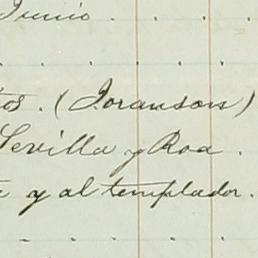 Junio . .
tos. (Joranson)
Sevilla y Roa.
y al templador.